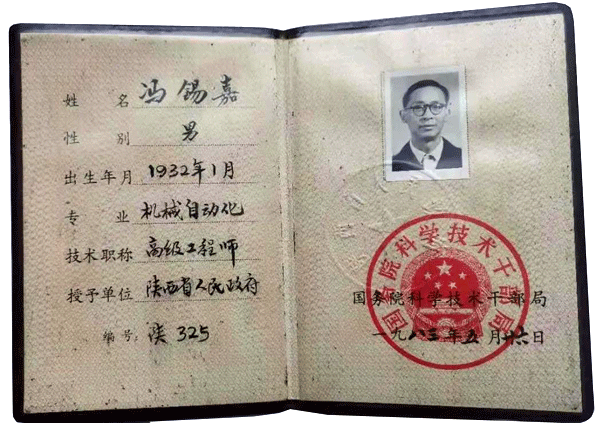 姓名 冯锡嘉
性别 男
出生年月 1932年1月
专业 机械自动化
技术职称 高级工程师
授予单位 陕西省人民政府
编号: 陕325
国务院科学技术干部局
国务院科学技术干部局
一九八三年五月廿六日